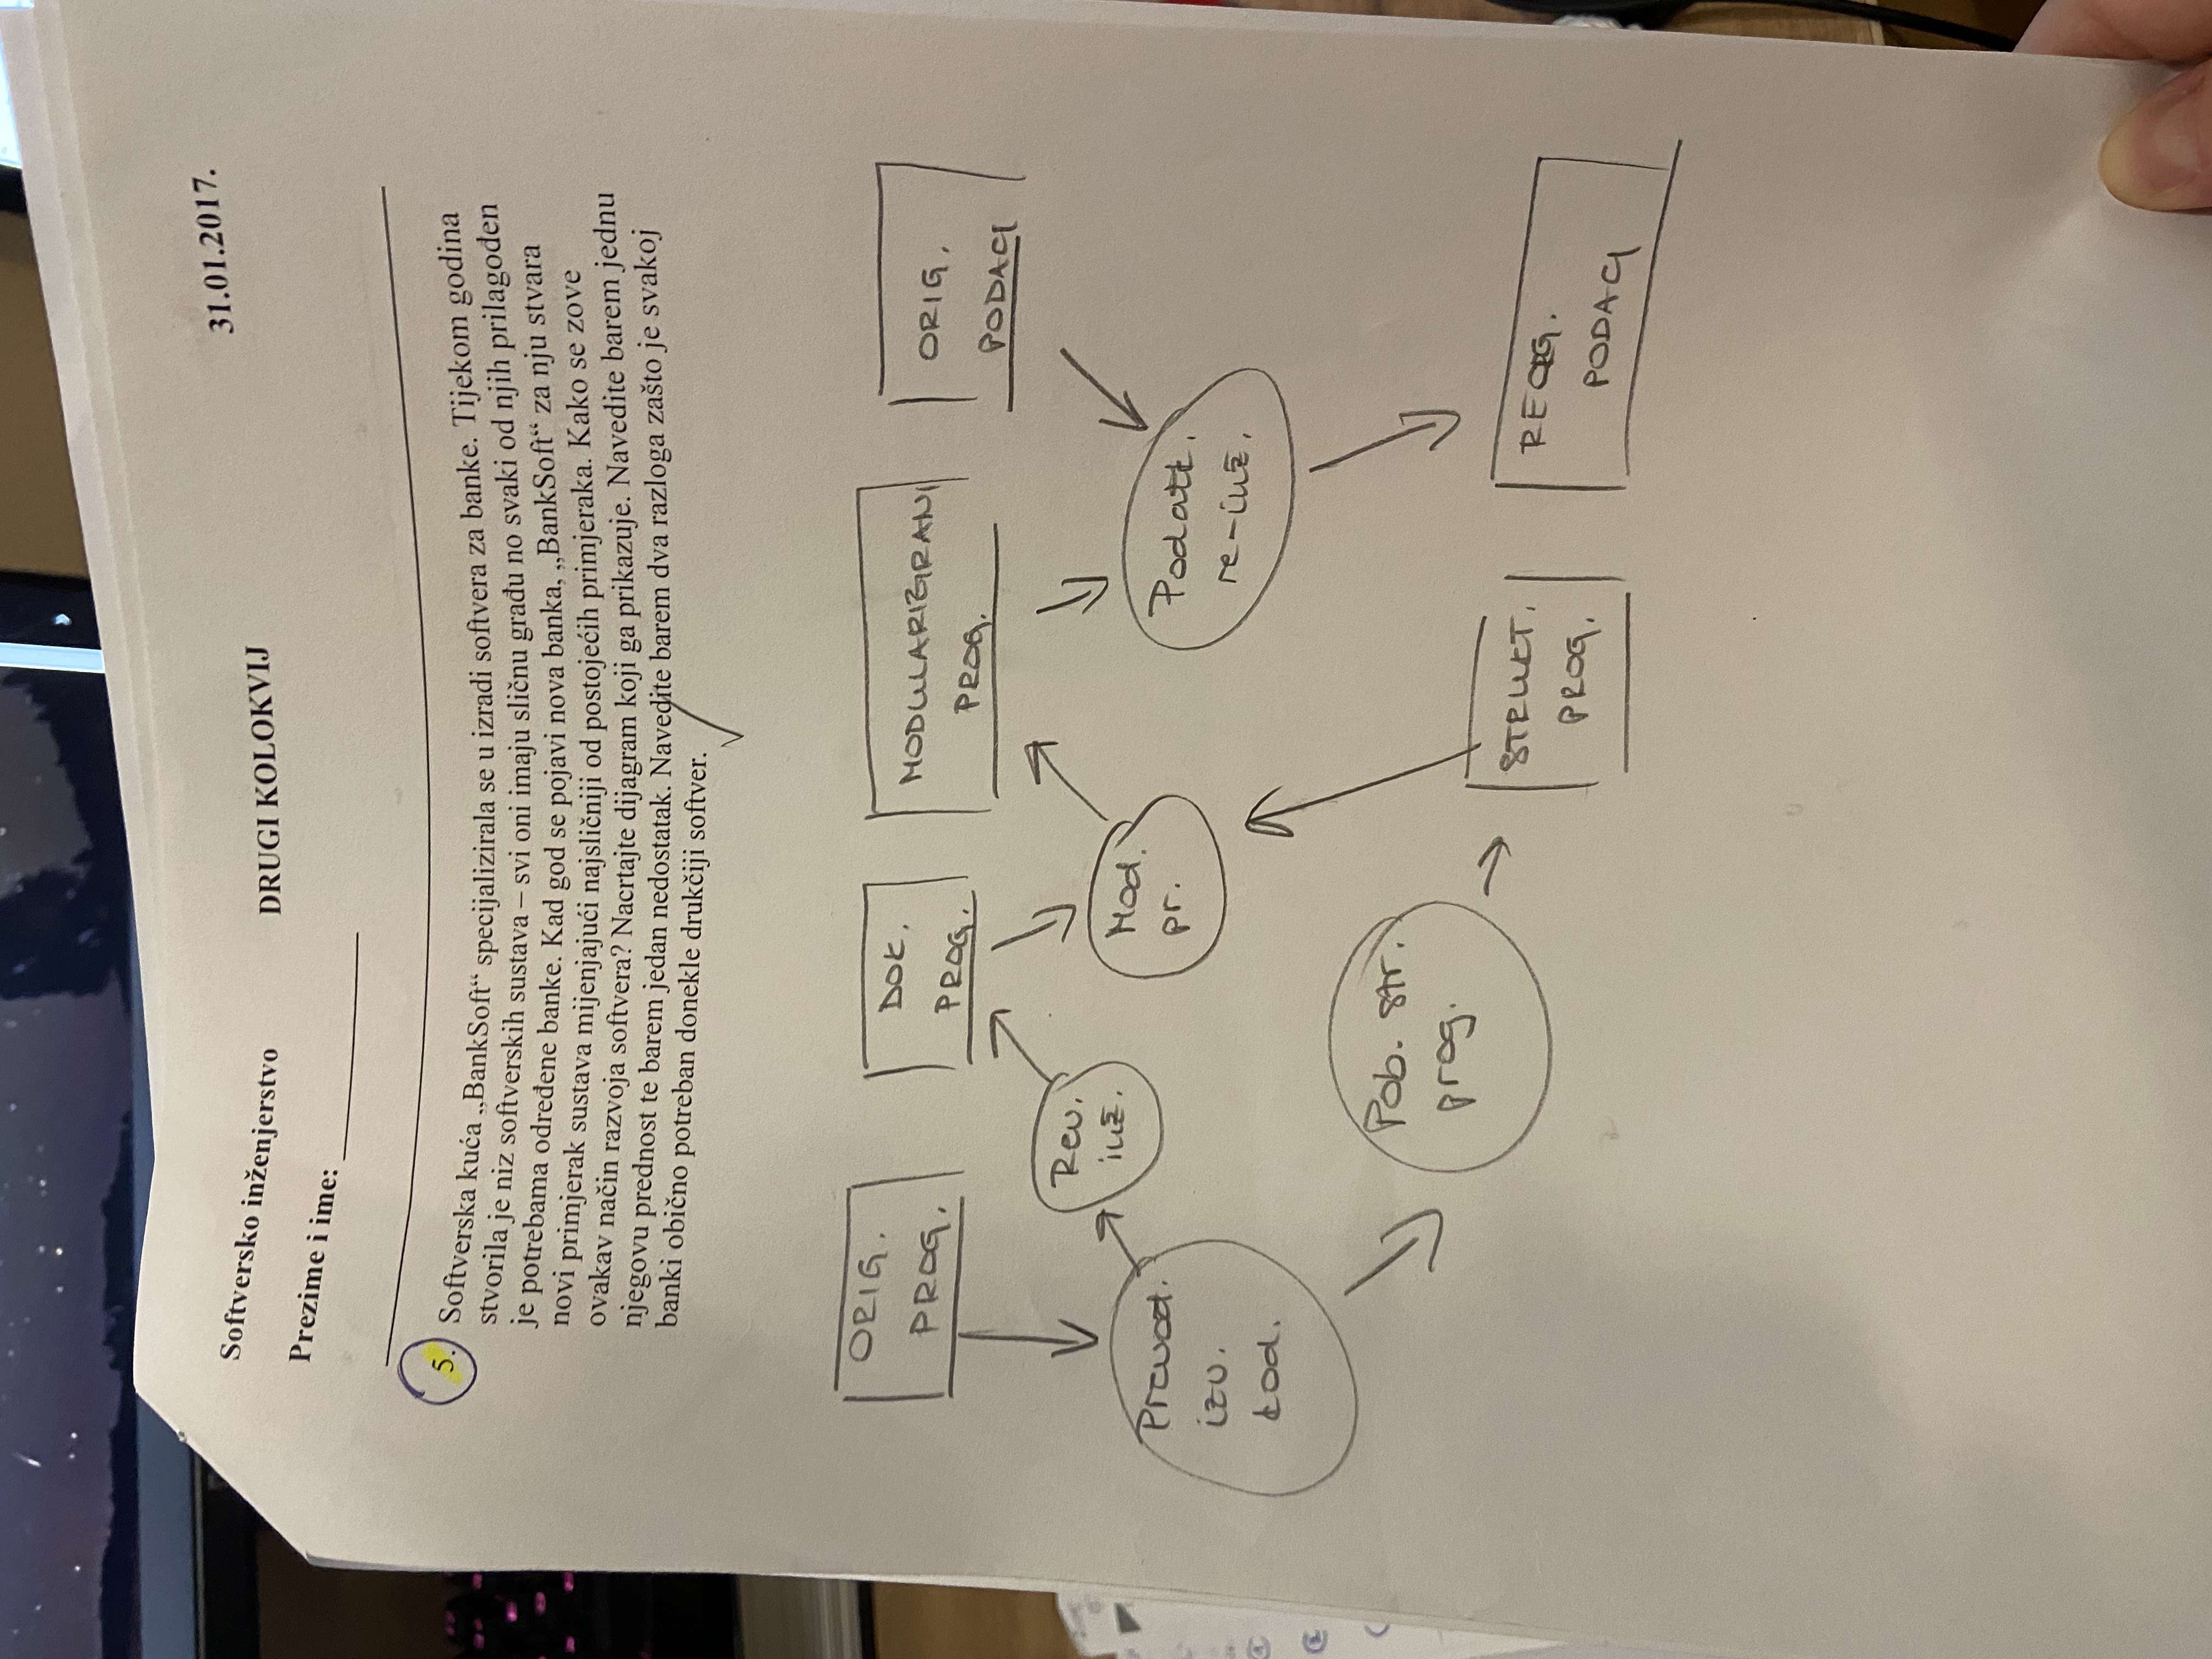 31.01.2017.
Softversko inženjerstvo
DRUGI KOLOKVIJ
Prezime i ime:
5. Softverska kuća „BankSoft“ specijalizirala se u izradi softvera za banke. Tijekom godina
stvorila je niz softverskih sustava – svi oni imaju sličnu građu no svaki od njih prilagođen
je potrebama određene banke. Kad god se pojavi nova banka, „BankSoft“ za nju stvara
novi primjerak sustava mijenjajući najsličniji od postojećih primjeraka. Kako se zove
ovakav način razvoja softvera? Nacrtajte dijagram koji ga prikazuje. Navedite barem jednu
njegovu prednost te barem jedan nedostatak. Navedite barem dva razloga zašto je svakoj
banki obično potreban donekle drukčiji softver.
ORIG.
PROG.
DOK.
PROG.
MODULARIZIRANI
PROG.
ORIG.
PODACI
Rev.
inž.
Prevod.
izv.
kod.
Mod.
pr.
Podatk.
re-inž.
Pob. str.
prog.
STRUKT.
PROG.
REORG.
PODACI